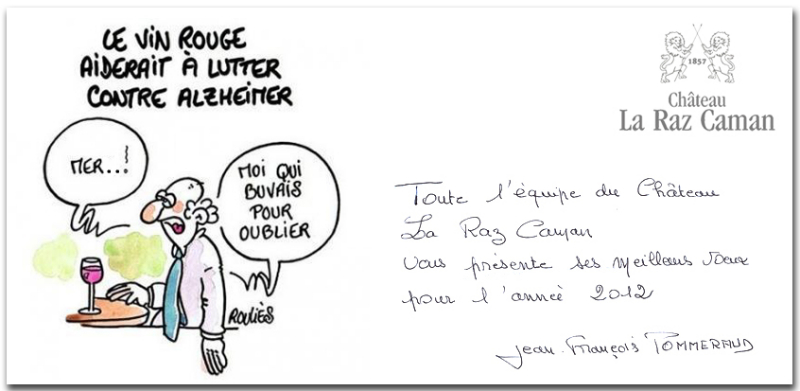 LE VIN ROUGE
AIDERAIT À LUTTER
CONTRE ALZHEIMER
MER...!
MOI QUI
BUVAIS
POUR
OUBLIER
ROULIÈS
1857
Château
La Raz Caman
Toute l'équipe du Château
La Raz Caman
vous présente ses meilleurs voeux
pour l'année 2012
Jean-François POMMERAUD